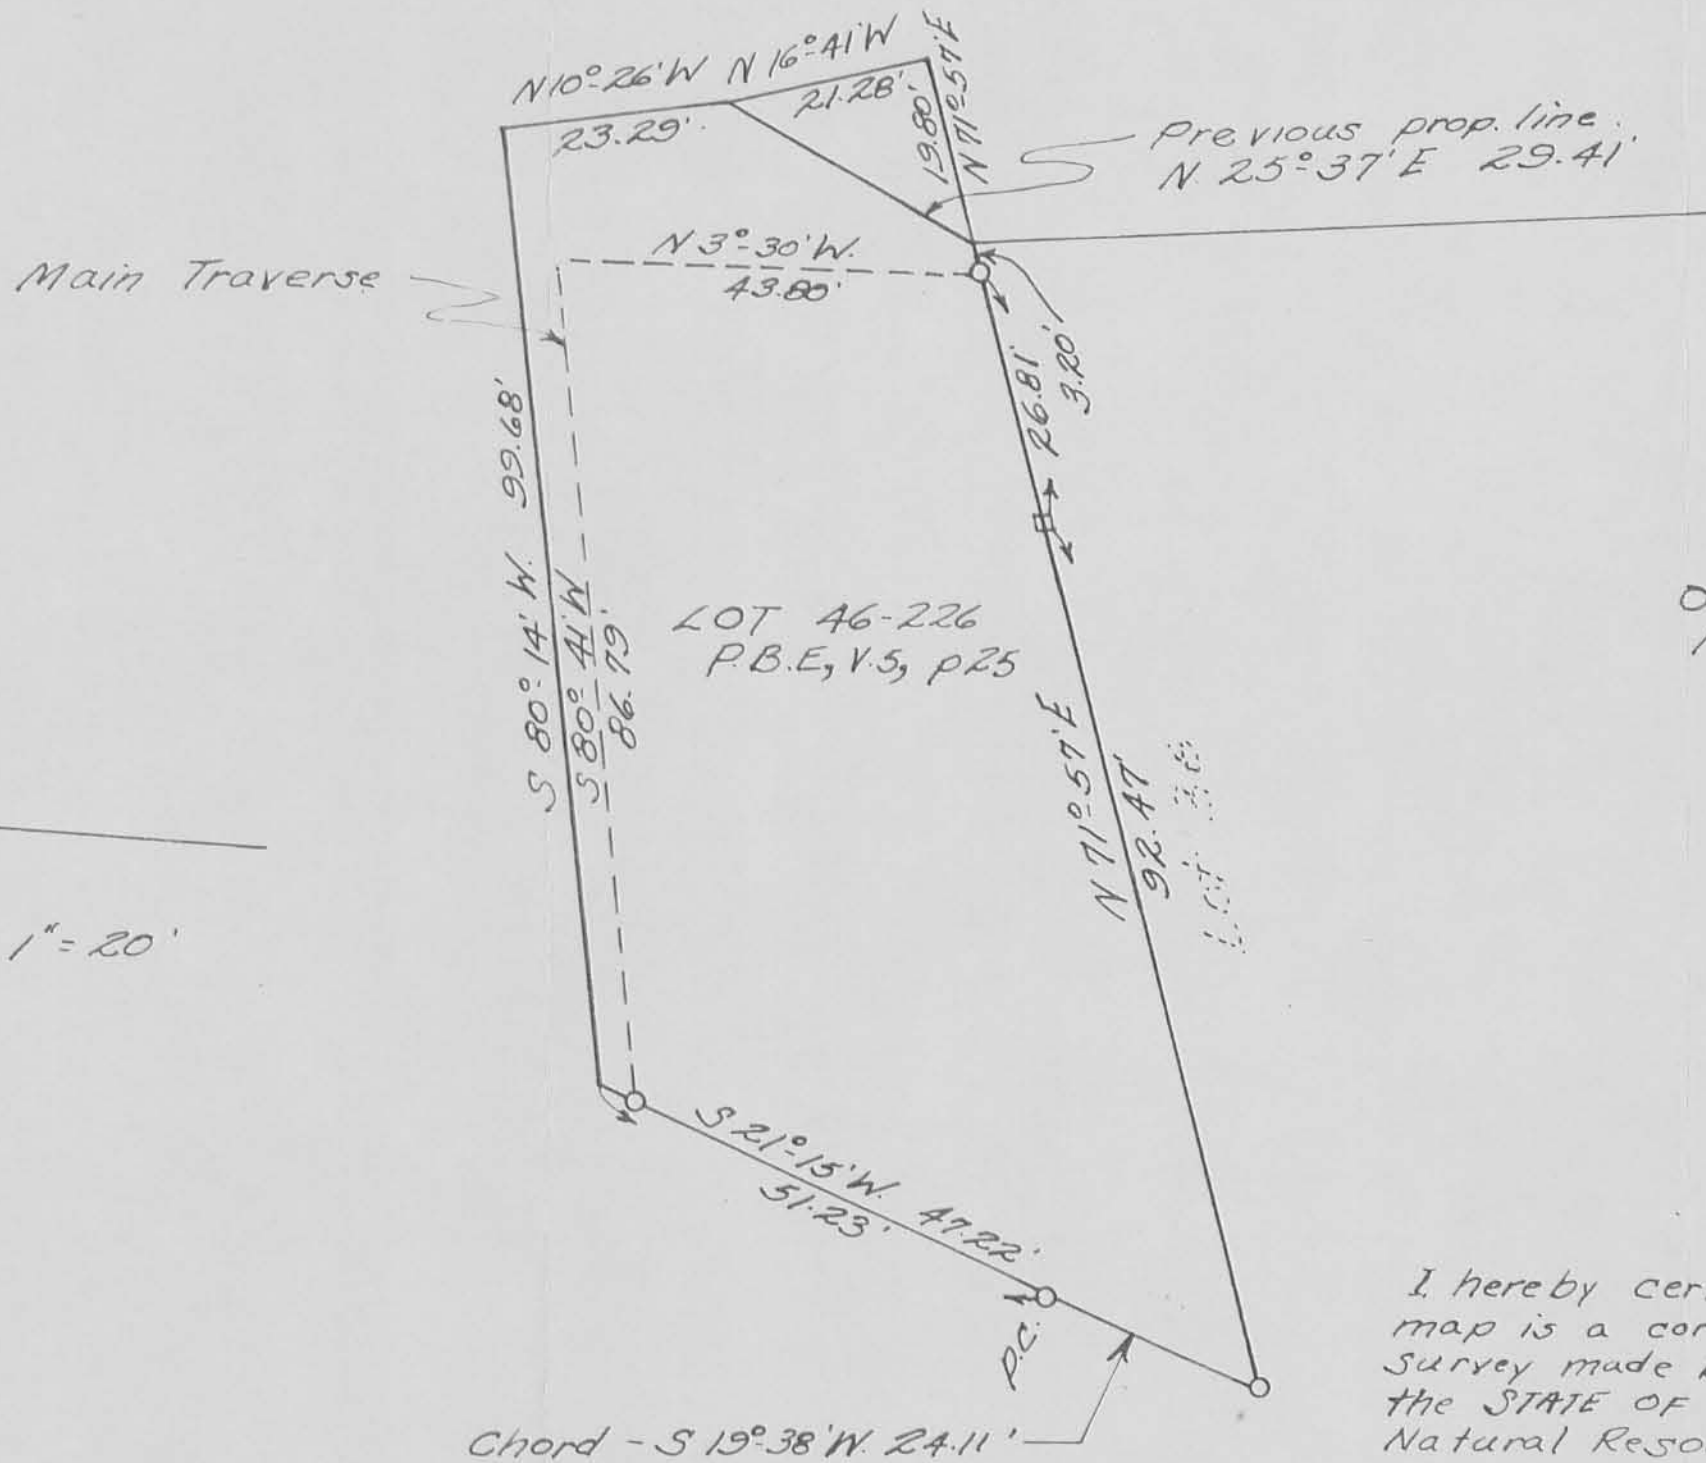 N 10°-26' W
23.29'
N 16°-41' W
21.28'
19.80'
N 71°-57' E
Previous prop. line
N 25°-37' E 29.41'
Main Traverse
N 3°-30' W.
43.80'
26.81'
3.20'
S 80°-14' W. 99.68'
S 80°-41' W
86.79'
LOT 46-226
P.B.E, V.5, p25
N 71°-57' E
92.47'
LOT
1" = 20'
S 21°-15' W. 47.22'
51.23'
P.C.
Chord - S 19°-38' W. 24.11'
I hereby cer
map is a cor
survey made
the STATE OF
Natural Reso